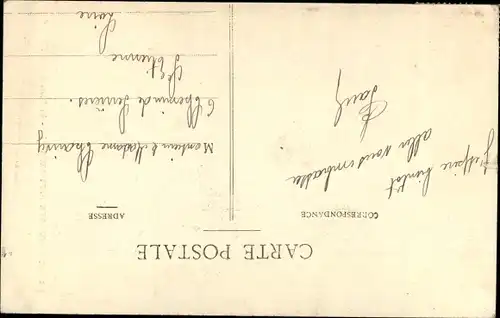 CARTE POSTALE
CORRESPONDANCE
J'espère bientôt
aller vous embrasser
ADRESSE
Monsieur & Madame
6 Chemin de
St Etienne
Loire